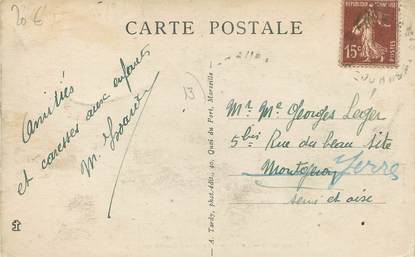 20 €
CARTE POSTALE
15c
13
Amitiés
et caresses aux enfants
M.
A. Tardy, phot.-édit., 40, Quai du Port, Marseille
Mr Me Georges Léger
5bis Rue du beau Site
Montgeron Yerres
Seine et oise